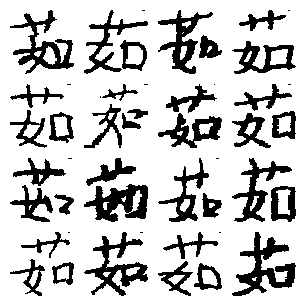 茹茹茹茹
茹茹茹茹
茹茹茹茹
茹茹茹茹